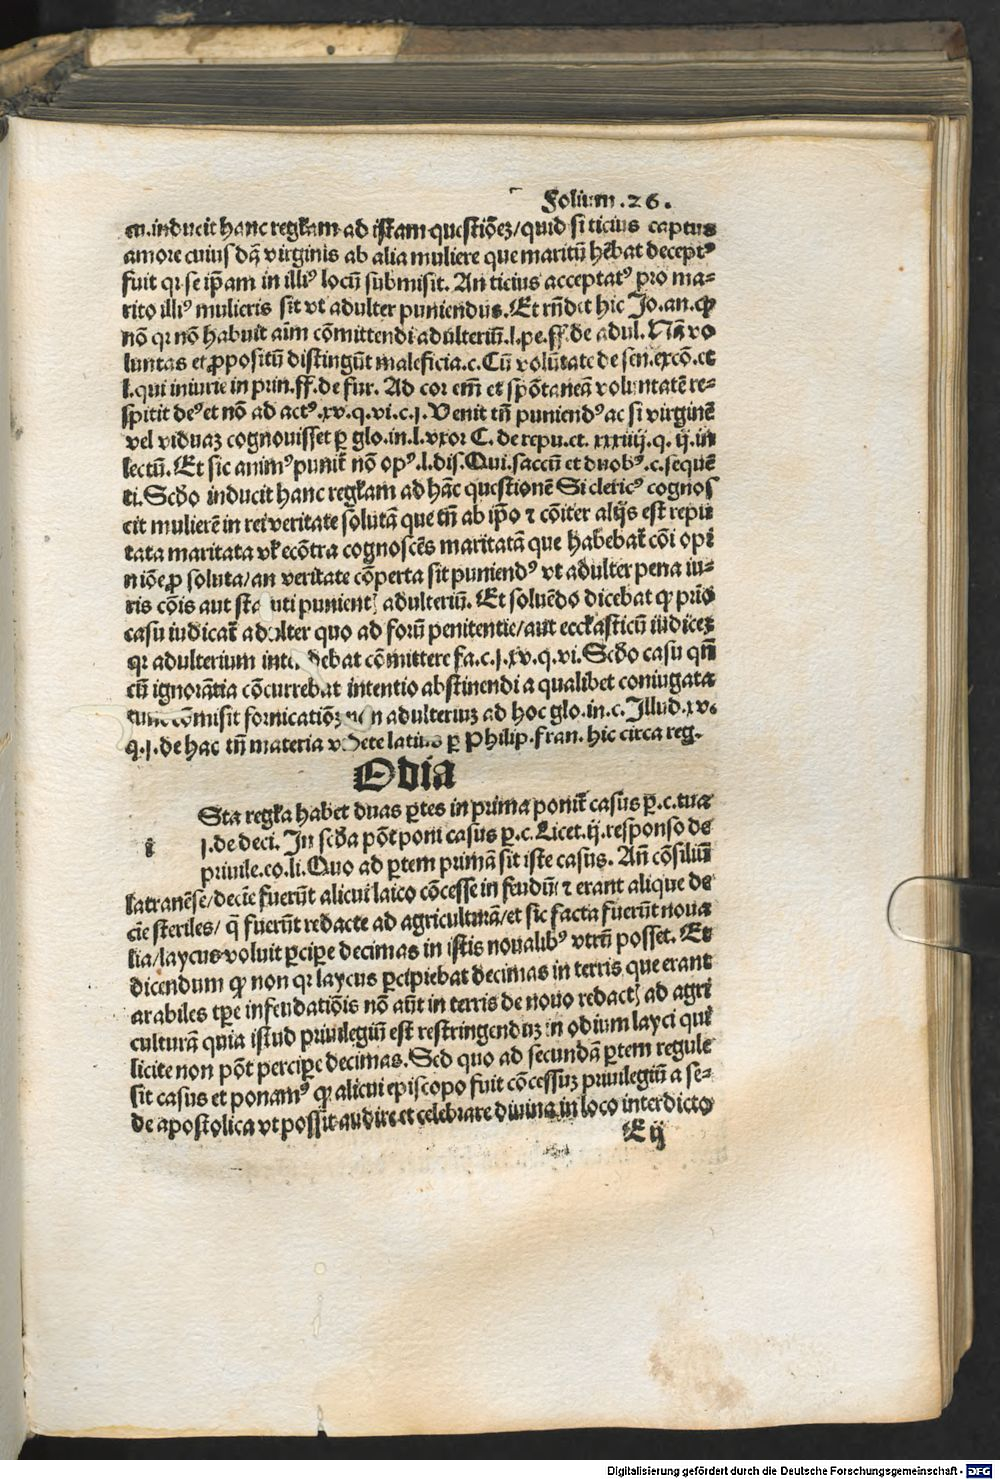 Folium .26.
an. inducit hanc regkam ad istam questiōez/quid si ticius captus
amore cuiusdā virginis ab alia muliere que maritū hēbat deceptꝰ
fuit qꝛ se ip̄am in illiꝰ locū submisit. An ticius acceptatꝰ pro ma⸗
rito illiꝰ mulieris sit vt adulter puniendus. Et rn̄det hic Jo. an. ꝙ
nō qꝛ nō habuit aīm cōmittendi adulteriū. l. pe. ff. de adul. Nā vo
luntas et ꝓpositū distingūt maleficia. c. Cū volūtate de sen. excō. et
l. qui iniurie in prin. ff. de fur. Ad cor em̄ et spōtaneā voluntatē re⸗
spitit deꝰ et nō ad actꝰ. xv. q. vi. c. j. Venit tn̄ puniendꝰ ac si virginē
vel viduaz cognouisset ꝑ glo. in. l. vxor C. de repu. et. xxxiiij. q. ij. in
lectū. Et sic animꝰ punit̄ nō opꝰ. l. dis. Qui. saccū et duobꝰ. c. sequē
ti. Scd̄o inducit hanc regkam ad hāc questionē Si clericꝰ cognos
cit mulierē in rei veritate solutā que tn̄ ab ip̄o ⁊ cōiter alijs est repu
tata maritata vl̄ ecōtra cognoscēs maritatā que habebat̄ cōi opi
niōe ꝓ soluta/an veritate cōperta sit puniendꝰ vt adulter pena iu⸗
ris cōis aut sta uti punientꝭ adulteriū. Et soluēdo dicebat ꝙ prio
casu iudicat̄ ad lter quo ad forū penitentie/aut eccl̄asticū iudicez
qꝛ adulterium inte debat cōmittere fa. c. j. xv. q. vi. Scd̄o casu qn̄
cū ignorātia cōcurrebat intentio abstinendi a qualibet coniugata
tunc cōmisit fornicatiōz non adulteriuz ad hoc glo. in. c. Illud. xv.
q. j. de hac tn̄ materia v dete latius ꝑ Philip. fran. hic circa reg.
Odia
i
Sta regka habet duas ꝑtes in prima ponit̄ casus ꝑ. c. tua
j. de deci. In scd̄a pōt poni casus ꝑ. c. Licet. ij. responso de
priuile. eo. li. Quo ad ꝑtem primā sit iste casus. An̄ cōsiliū
latranēse/decīe fuerūt alicui laico cōcesse in feudū ⁊ erant alique de
cīe steriles/ q̄ fuerūt redacte ad agriculturā/et sic facta fuerūt noua
lia/laycus voluit ꝑcipe decimas in istis noualibꝰ vtrū posset. Et
dicendum ꝙ non qꝛ laycus ꝑcipiebat decimas in terris que erant
arabiles tꝑe infeudatiōis nō aūt in terris de nouo redactꝭ ad agri
culturā quia istud priuilegiū est restringenduz in odium layci qui
licite non pōt percipe decimas. Sed quo ad secundā ꝑtem regule
sit casus et ponamꝰ ꝙ alicui episcopo fuit cōcessuz priuilegiū a se⸗
de apostolica vt possit audire et celebrare diuina in loco interdicto
E ij
Digitalisierung gefördert durch die Deutsche Forschungsgemeinschaft - DFG